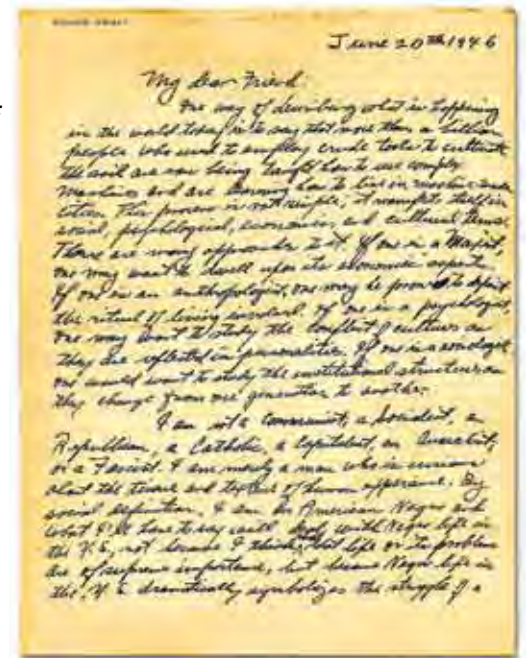 June 20th 1946
My dear Friend:
One way of describing what is happening
in the world today is to say that more than a billion
people who used to employ crude tools to cultivate
the soil are now being taught how to use complex
machines and are learning how to live in machine
This process is not simple; it manifests itself in
social, psychological, economic, and cultural terms.
There are many approaches to it. If one is a Marxist,
one may want to dwell upon its economic aspects.
If one is an anthropologist, one may be prone to depict
the ritual of living involved. If one is a psychologist,
one may want to study the conflict of cultures as
they are reflected in personalities. If one is a sociologist
one would want to study the institutional structures as
they change from one generation to another.
I am not a Communist, a Socialist, a
Republican, a Catholic, a Capitalist, an Anarchist,
or a Fascist. I am merely a man who is curious
about the tenure and texture of human experience. By
social definition, I am an American Negro and
what I'll have to say will deal with Negro life in
the U.S., not because I think that life or its problems
are of supreme importance, but because Negro life in
the U.S. dramatically symbolizes the struggle of a